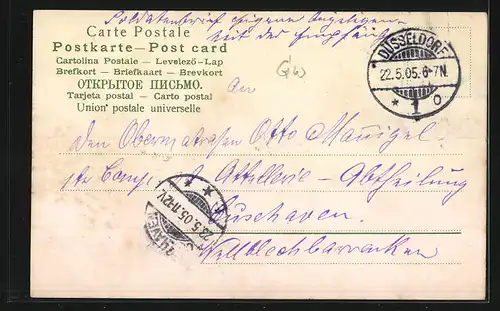 Carte Postale
Postkarte — Post card
Cartolina Postale — Levelező-Lap
Brefkort — Briefkaart — Brevkort
ОТКРЫТОЕ ПИСЬМО.
Tarjeta postal — Carto postal
Union postale universelle
Soldatenbrief eigene Angelegen-
heit des Empfängers
DÜSSELDORF
22.5.05.6-7N.
* 1 o
An
den Obermatrosen Otto
Comp. Artillerie - Abtheilung
Cuxhaven
Wellblechbarracken
HAVEN
22.5.05.11-12V.